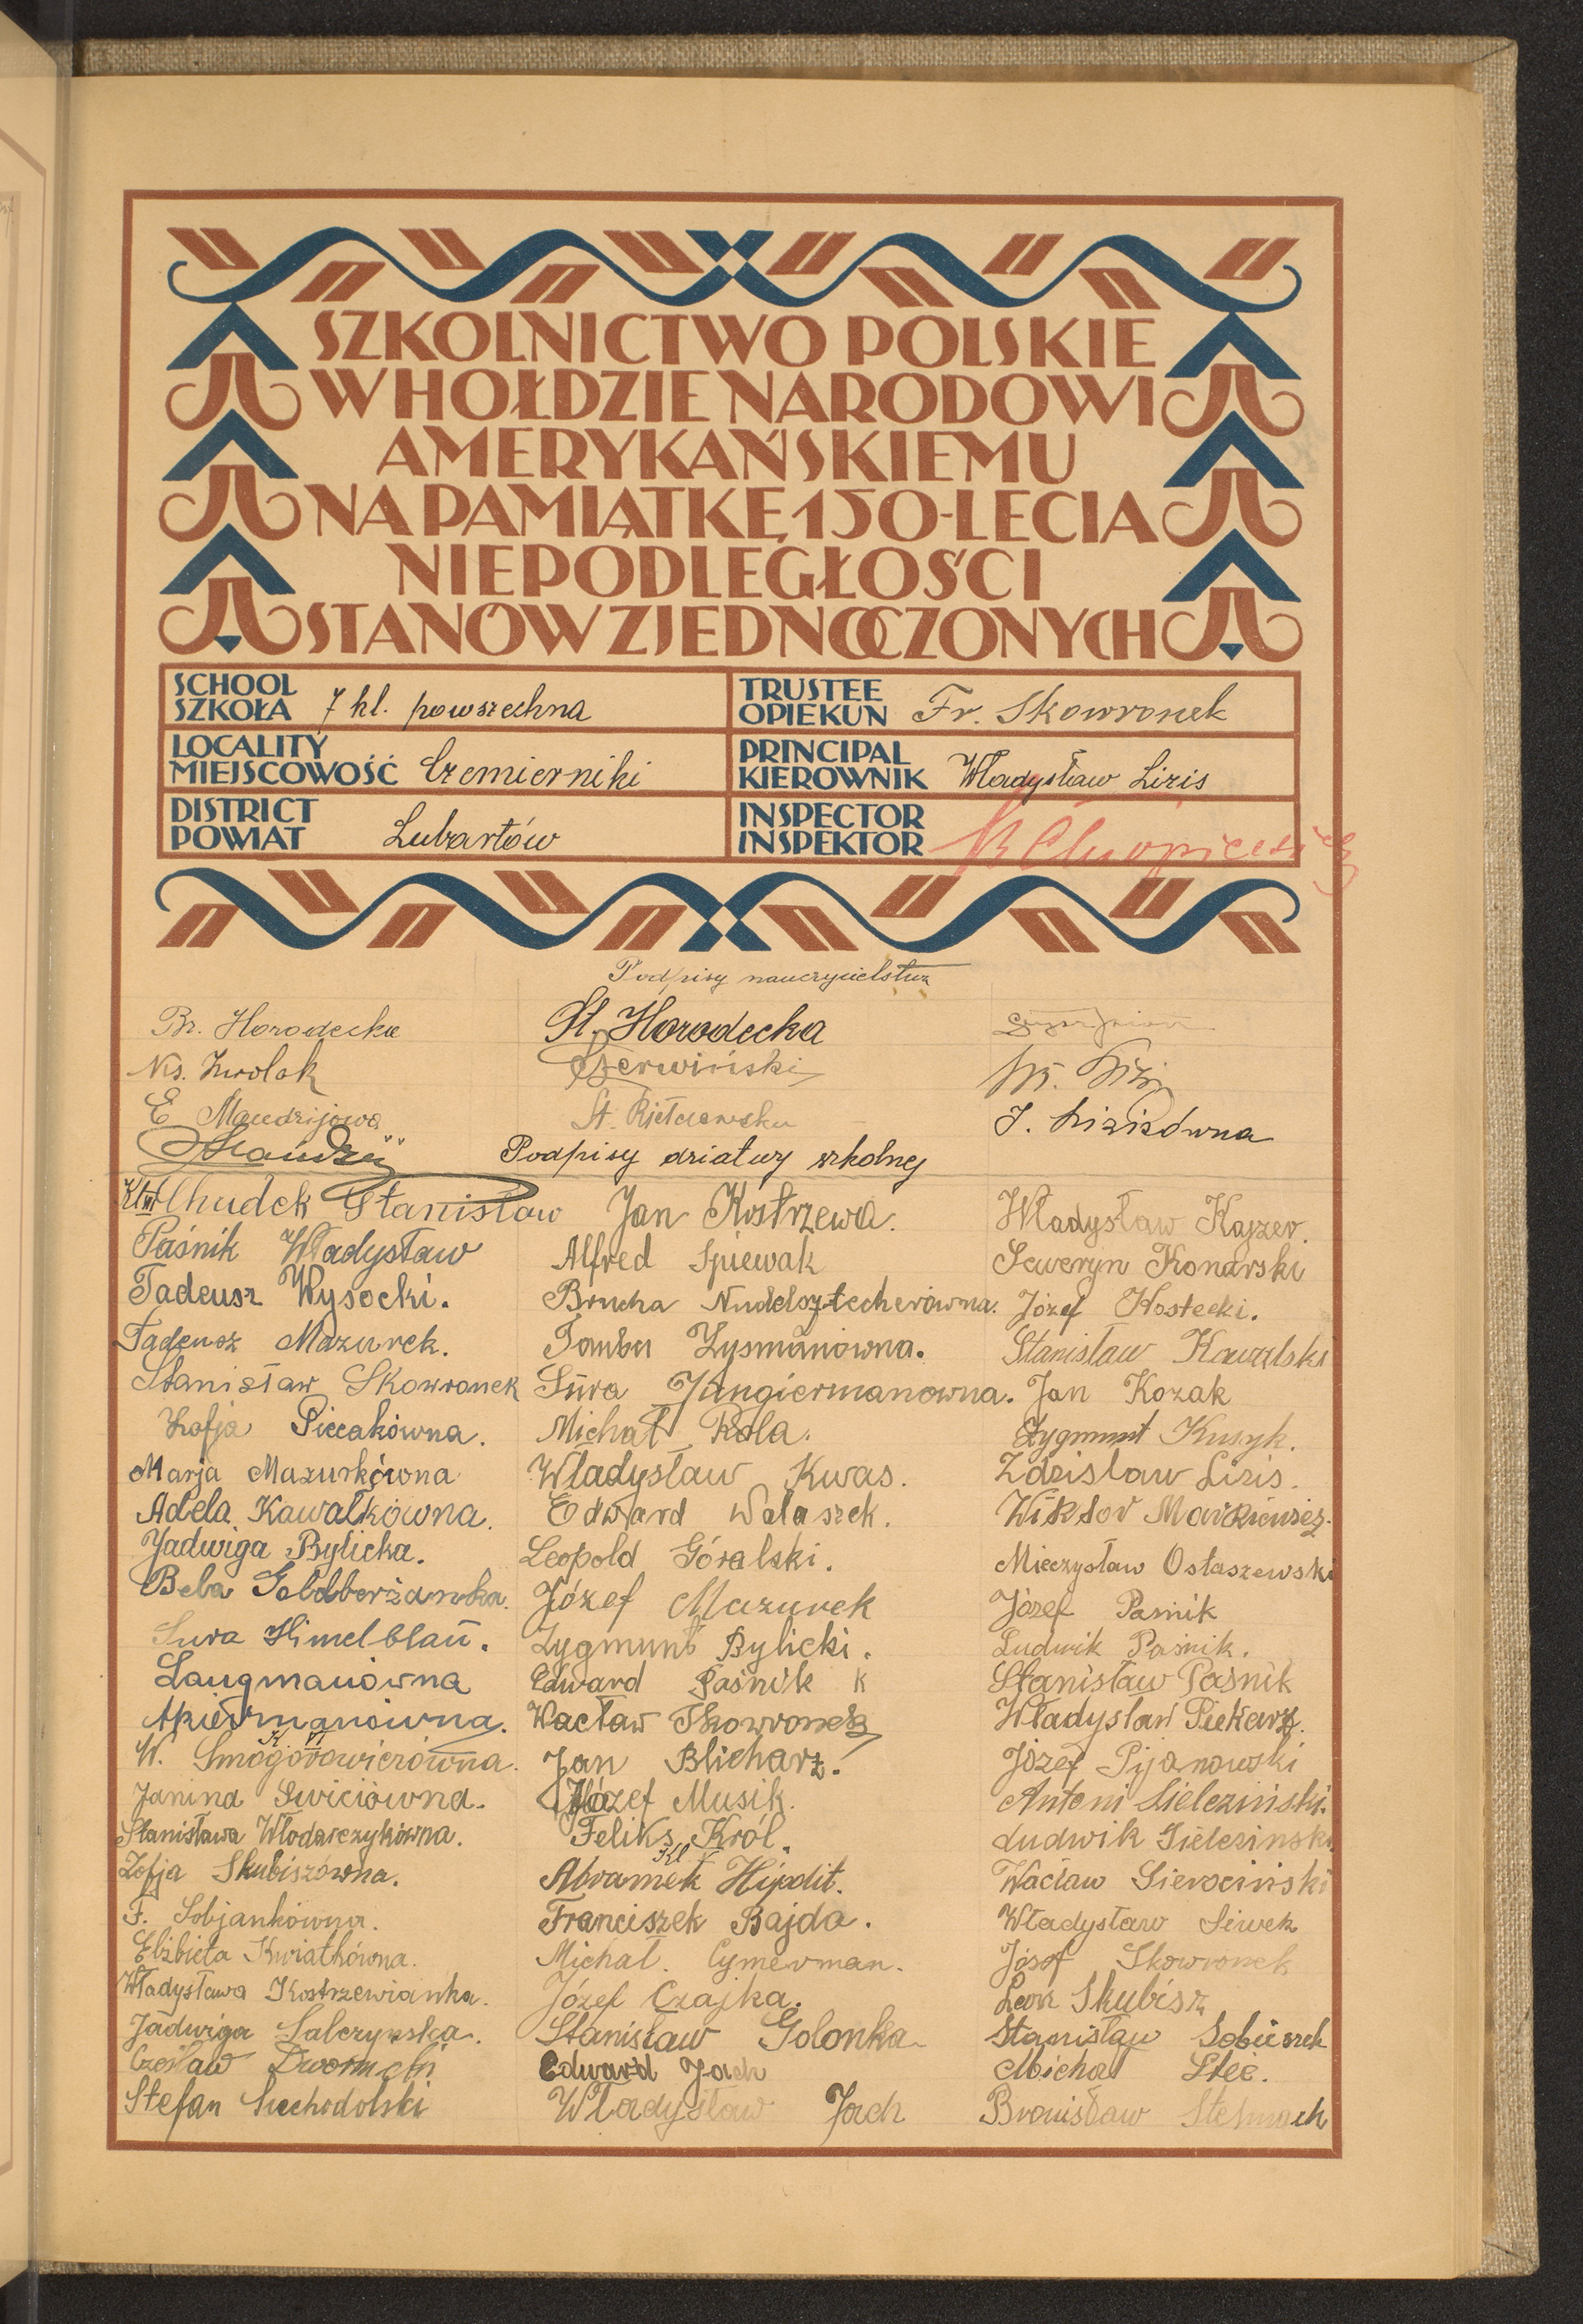 SZKOLNICTWO POLSKIE
W HOŁDZIE NARODOWI
AMERYKAŃSKIEMU
NA PAMIĄTKĘ 150-LECIA
NIEPODLEGŁOŚCI
STANÓW ZJEDNOCZONYCH
SCHOOL
SZKOŁA 7 kl. powszechna
TRUSTEE
OPIEKUN Fr. Skowronek
LOCALITY
MIEJSCOWOŚĆ Czemierniki
PRINCIPAL
KIEROWNIK Władysław Lizis
DISTRICT
POWIAT Lubartów
INSPECTOR
INSPEKTOR
Podpisy nauczycielstwa
Br. Horodecka
St. Horodecka
Ks. Zwolak
Czerwiński
E Mandzijowa
St.
J. Lizisówna
Mandzij
Podpisy dziatwy szkolnej
Kl VII Chudek Stanisław
Paśnik Władysław
Tadeusz Wysocki.
Tadeusz Mazurek.
Stanisław Skowronek
Zofja Pieczakówna.
Marja Mazurkówna
Adela Kawałkówna.
Jadwiga Bylicka.
Bela Goldberżanka.
Sura Himelblau.
Langmanówna
Apiermanówna.
Kl VI
W. Smogorowiczówna.
Janina Swiciówna.
Stanisława Włodarczykówna.
Zofja Skubiszówna.
F. Sobjankówna.
Elżbieta Kwiatkówna.
Władysława Kostrzewianka.
Jadwiga Salczyńska.
Czesław Dwornicki
Stefan Suchodolski
Jan Kostrzewa.
Alfred Śpiewak
Brucha Nudelsztecherówna.
Tauba Zysmanówna.
Sura Jungiermanowna.
Michał Rola.
Władysław Kwas.
Edward Walaszek.
Leopold Góralski.
Józef Mazurek
Zygmunt Bylicki.
Edward Paśnik K
Wacław Skowronek
Jan Blicharz.
Józef Musik.
Feliks Król.
Kl V
Abramek Hipolit.
Franciszek Bajda.
Michał. Cymerman.
Józef Czajka.
Stanisław Golonka
Edward Jach
Władysław Jach
Władysław Kajzer.
Seweryn Konarski
Józef Kostecki.
Stanisław Kowalski
Jan Kozak
Zygmunt Kusyk.
Zdzisław Lizis.
Wiktor Markiewicz.
Mieczysław Ostaszewski
Józef Paśnik
Ludwik Paśnik.
Stanisław Paśnik
Władysław Piekarz.
Józef Pijanowski
Antoni Sieleziński.
Ludwik Sielesinski
Wacław Sierociński
Władysław Siwek
Józef Skowronek
Leon Skubisz
Stanisław Sobieszek
Michał Steć.
Bronisław Stelmach